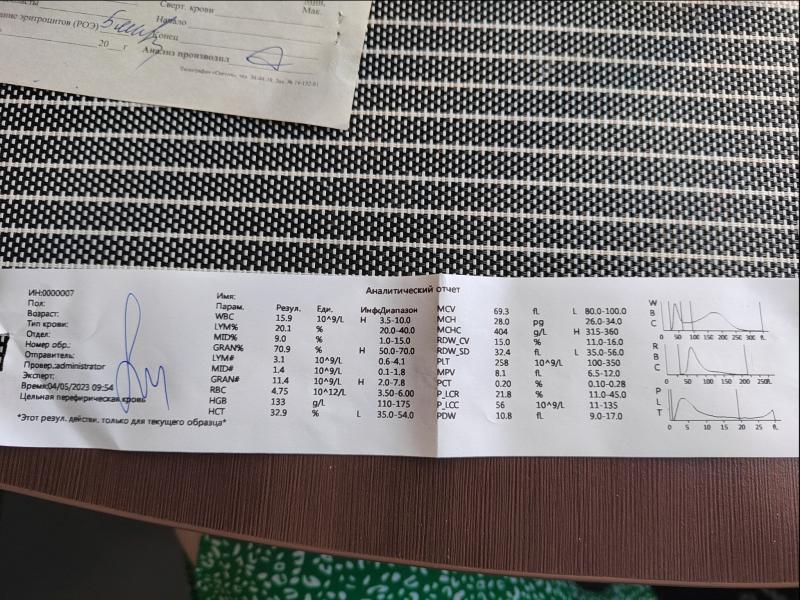 Сверт. крови
Мак.
Начало
ание эритроцитов (РОЭ) 5 мм/
Конец
20 г Анализ производил
Аналитический отчет
ИН:0000007
Пол:
Возраст:
Тип крови:
Отдел:
Номер обр.:
Отправитель:
Провер.:administrator
Эксперт:
Время:04/05/2023 09:54
Цельная периферическая кровь
*Этот резул. действи. только для текущего образца*
Имя:
Парам. Резул. Еди. Инфо Диапазон
WBC 15.9 10^9/L H 3.5-10.0
LYM% 20.1 % 20.0-40.0
MID% 9.0 % 1.0-15.0
GRAN% 70.9 % H 50.0-70.0
LYM# 3.1 10^9/L 0.6-4.1
MID# 1.4 10^9/L 0.1-1.8
GRAN# 11.4 10^9/L H 2.0-7.8
RBC 4.75 10^12/L 3.50-6.00
HGB 133 g/L 110-175
HCT 32.9 % L 35.0-54.0
MCV 69.3 fL L 80.0-100.0
MCH 28.0 pg 26.0-34.0
MCHC 404 g/L H 315-360
RDW_CV 15.0 % 11.0-16.0
RDW_SD 32.4 fL L 35.0-56.0
PLT 258 10^9/L 100-350
MPV 8.1 fL 6.5-12.0
PCT 0.20 % 0.10-0.28
P_LCR 21.8 % 11.0-45.0
P_LCC 56 10^9/L 11-135
PDW 10.8 fL 9.0-17.0
WBC
0 50 100 150 200 250 300 fL
RBC
0 50 100 150 200 250fL
PLT
0 5 10 15 20 25 fL